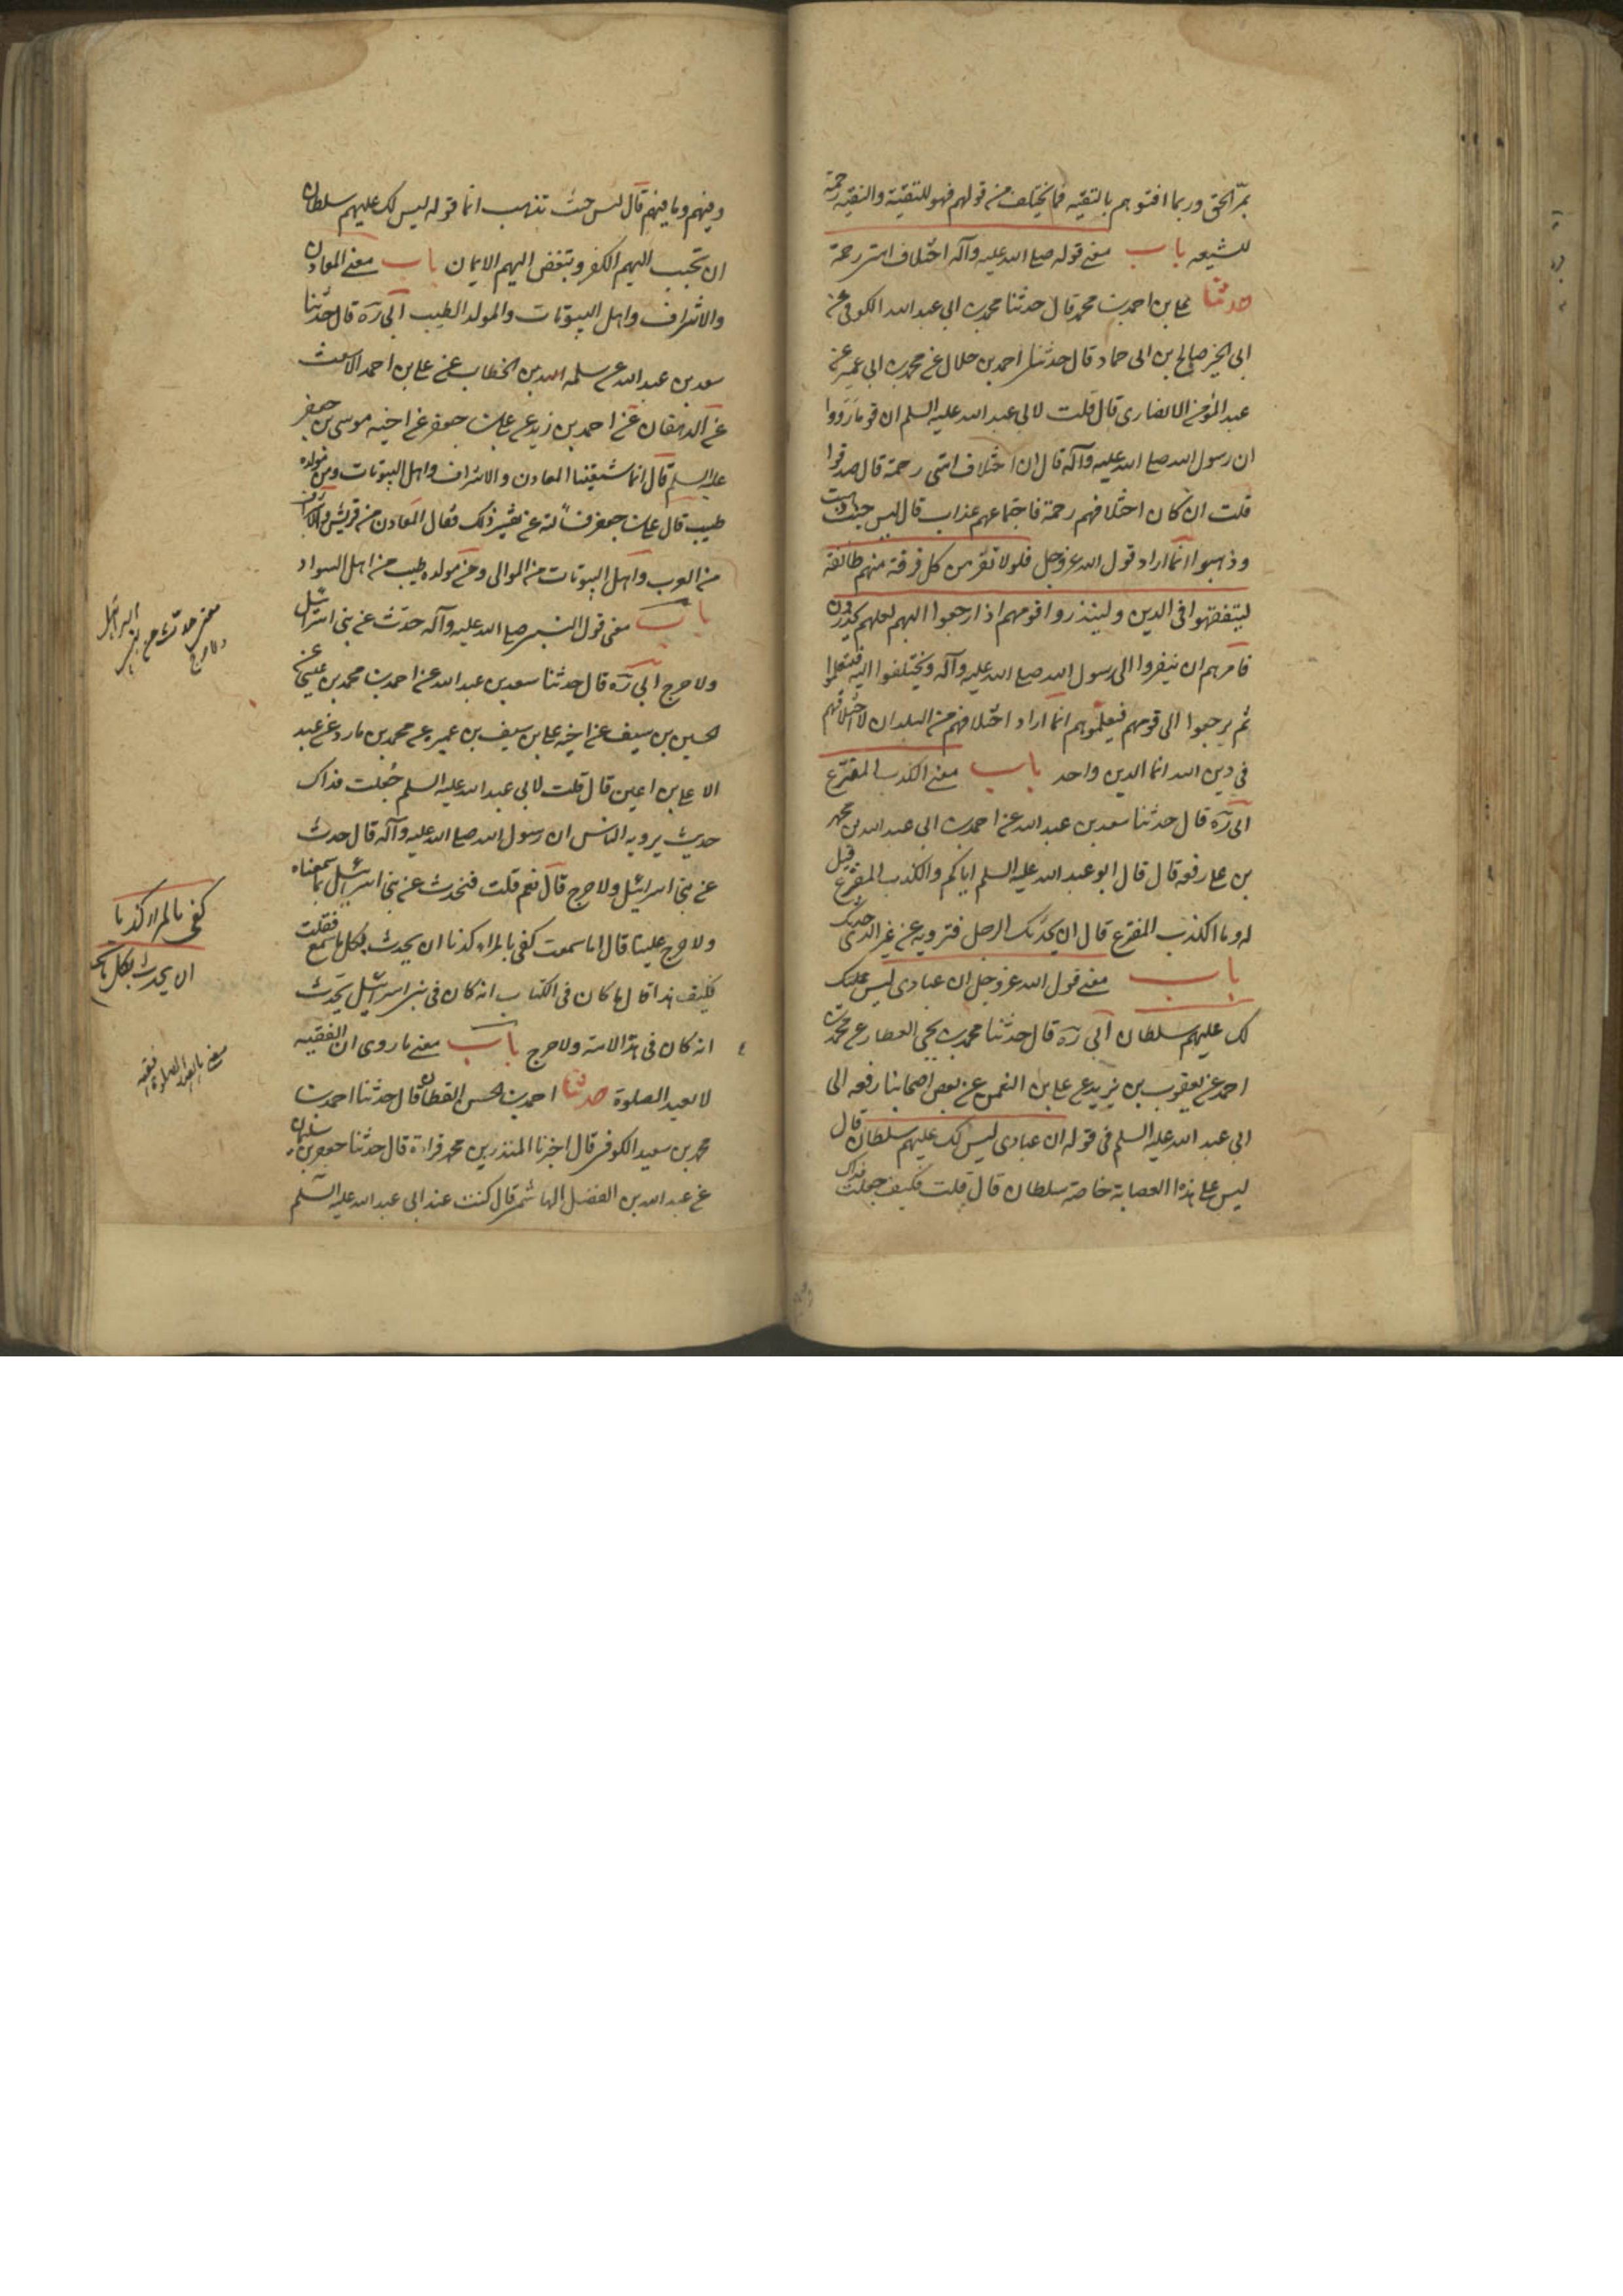 بمرّ الحق وربما افتوهم بالتقيه فما يختلف من قولهم فهو للتقية والتقيه رحمة
للشيعه باب معنى قوله صلى الله عليه وآله اختلاف امتى رحمة
حدثنا على بن احمد بن محمد قال حدثنا محمد بن ابى عبد الله الكوفى عن
ابى الخير صالح بن ابى حماد قال حدثنا احمد بن هلال عن محمد بن ابى عمير عن
عبد المؤمن الانصارى قال قلت لابى عبد الله عليه السلم ان قوما رووا
ان رسول الله صلى الله عليه وآله قال ان اختلاف امتى رحمة قال صدقوا
قلت ان كان اختلافهم رحمة فاجتماعهم عذاب قال ليس حيث ذهبت
وذهبوا انما اراد قول الله عز وجل فلولا نفر من كل فرقة منهم طائفة
ليتفقهوا فى الدين ولينذروا قومهم اذا رجعوا اليهم لعلهم يحذرون
فامرهم ان ينفروا الى رسول الله صلى الله عليه وآله ويختلفوا اليه فيتعلموا
ثم يرجعوا الى قومهم فيعلموهم انما اراد اختلافهم من البلدان لا اختلافهم
فى دين الله انما الدين واحد باب معنى الكذب المفترع
ابى ره قال حدثنا سعد بن عبد الله عن احمد بن ابى عبد الله بن محمد
بن على رفعه قال قال ابو عبد الله عليه السلم اياكم والكذب المفترع قيل
له وما الكذب المفترع قال ان يحدثك الرجل فترويه عن غير الذى حدثك
باب معنى قول الله عز وجل ان عبادى ليس
لك عليهم سلطان ابى ره قال حدثنا محمد بن يحيى العطار عن محمد بن
احمد عن يعقوب بن يزيد عن على بن النعمن عن بعض اصحابنا رفعه الى
ابى عبد الله عليه السلم فى قوله ان عبادى ليس لك عليهم سلطان قال
ليس على هذه العصابة خاصة سلطان قال قلت فكيف جعلت فداك
وفيهم وما فيهم قال ليس حيث تذهب انما قوله ليس لك عليهم سلطان
ان تحبب اليهم الكفر وتبغض اليهم الايمان باب معنى المعادن
والاشراف واهل البيوتات والمولد الطيب ابى ره قال حدثنا
سعد بن عبد الله عن سلمه بن الخطاب عن على بن احمد الاشعث
عن الدهقان عن احمد بن زيد عن على بن جعفر عن اخيه موسى بن جعفر
عليه السلم قال انما شيعتنا المعادن والاشراف واهل البيوتات ومن مولده
طيب قال على بن جعفر فسألته عن تفسير ذلك فقال المعادن من قريش والاشراف
من العرب واهل البيوتات من الموالى ومن مولده طيب من اهل السواد
باب معنى قول النبى صلى الله عليه وآله حدث عن بنى اسرائيل
ولا حرج ابى ره قال حدثنا سعد بن عبد الله عن احمد بن محمد بن عيسى عن
الحسين بن سيف عن اخيه على بن سيف بن عميره عن محمد بن مارد عن عبد
الاعلى بن اعين قال قلت لابى عبد الله عليه السلم جعلت فداك
حديث يرويه الناس ان رسول الله صلى الله عليه وآله قال حدث
عن بنى اسرائيل ولا حرج قال نعم قلت فنحدث عن بنى اسرائيل بما سمعناه
ولا حرج علينا قال اما سمعت كفى بالمرء كذبا ان يحدث بكل ما سمع فقلت
فكيف هذا قال ما كان فى الكتاب انه كان فى بنى اسرائيل يحدث
انه كان فى هذه الامة ولا حرج باب معنى ما روى ان الفقيه
لا يعيد الصلوة حدثنا احمد بن الحسن القطان قال حدثنا احمد بن
محمد بن سعيد الكوفى قال اخبرنا المنذر بن محمد قراءة قال حدثنا جعفر بن سليمان
عن عبد الله بن الفضل الهاشمى قال كنت عند ابى عبد الله عليه السلم
معنى حدث عن بنى اسرائيل
ولا حرج
كفى بالمرء كذبا
ان يحدث بكل ما سمع